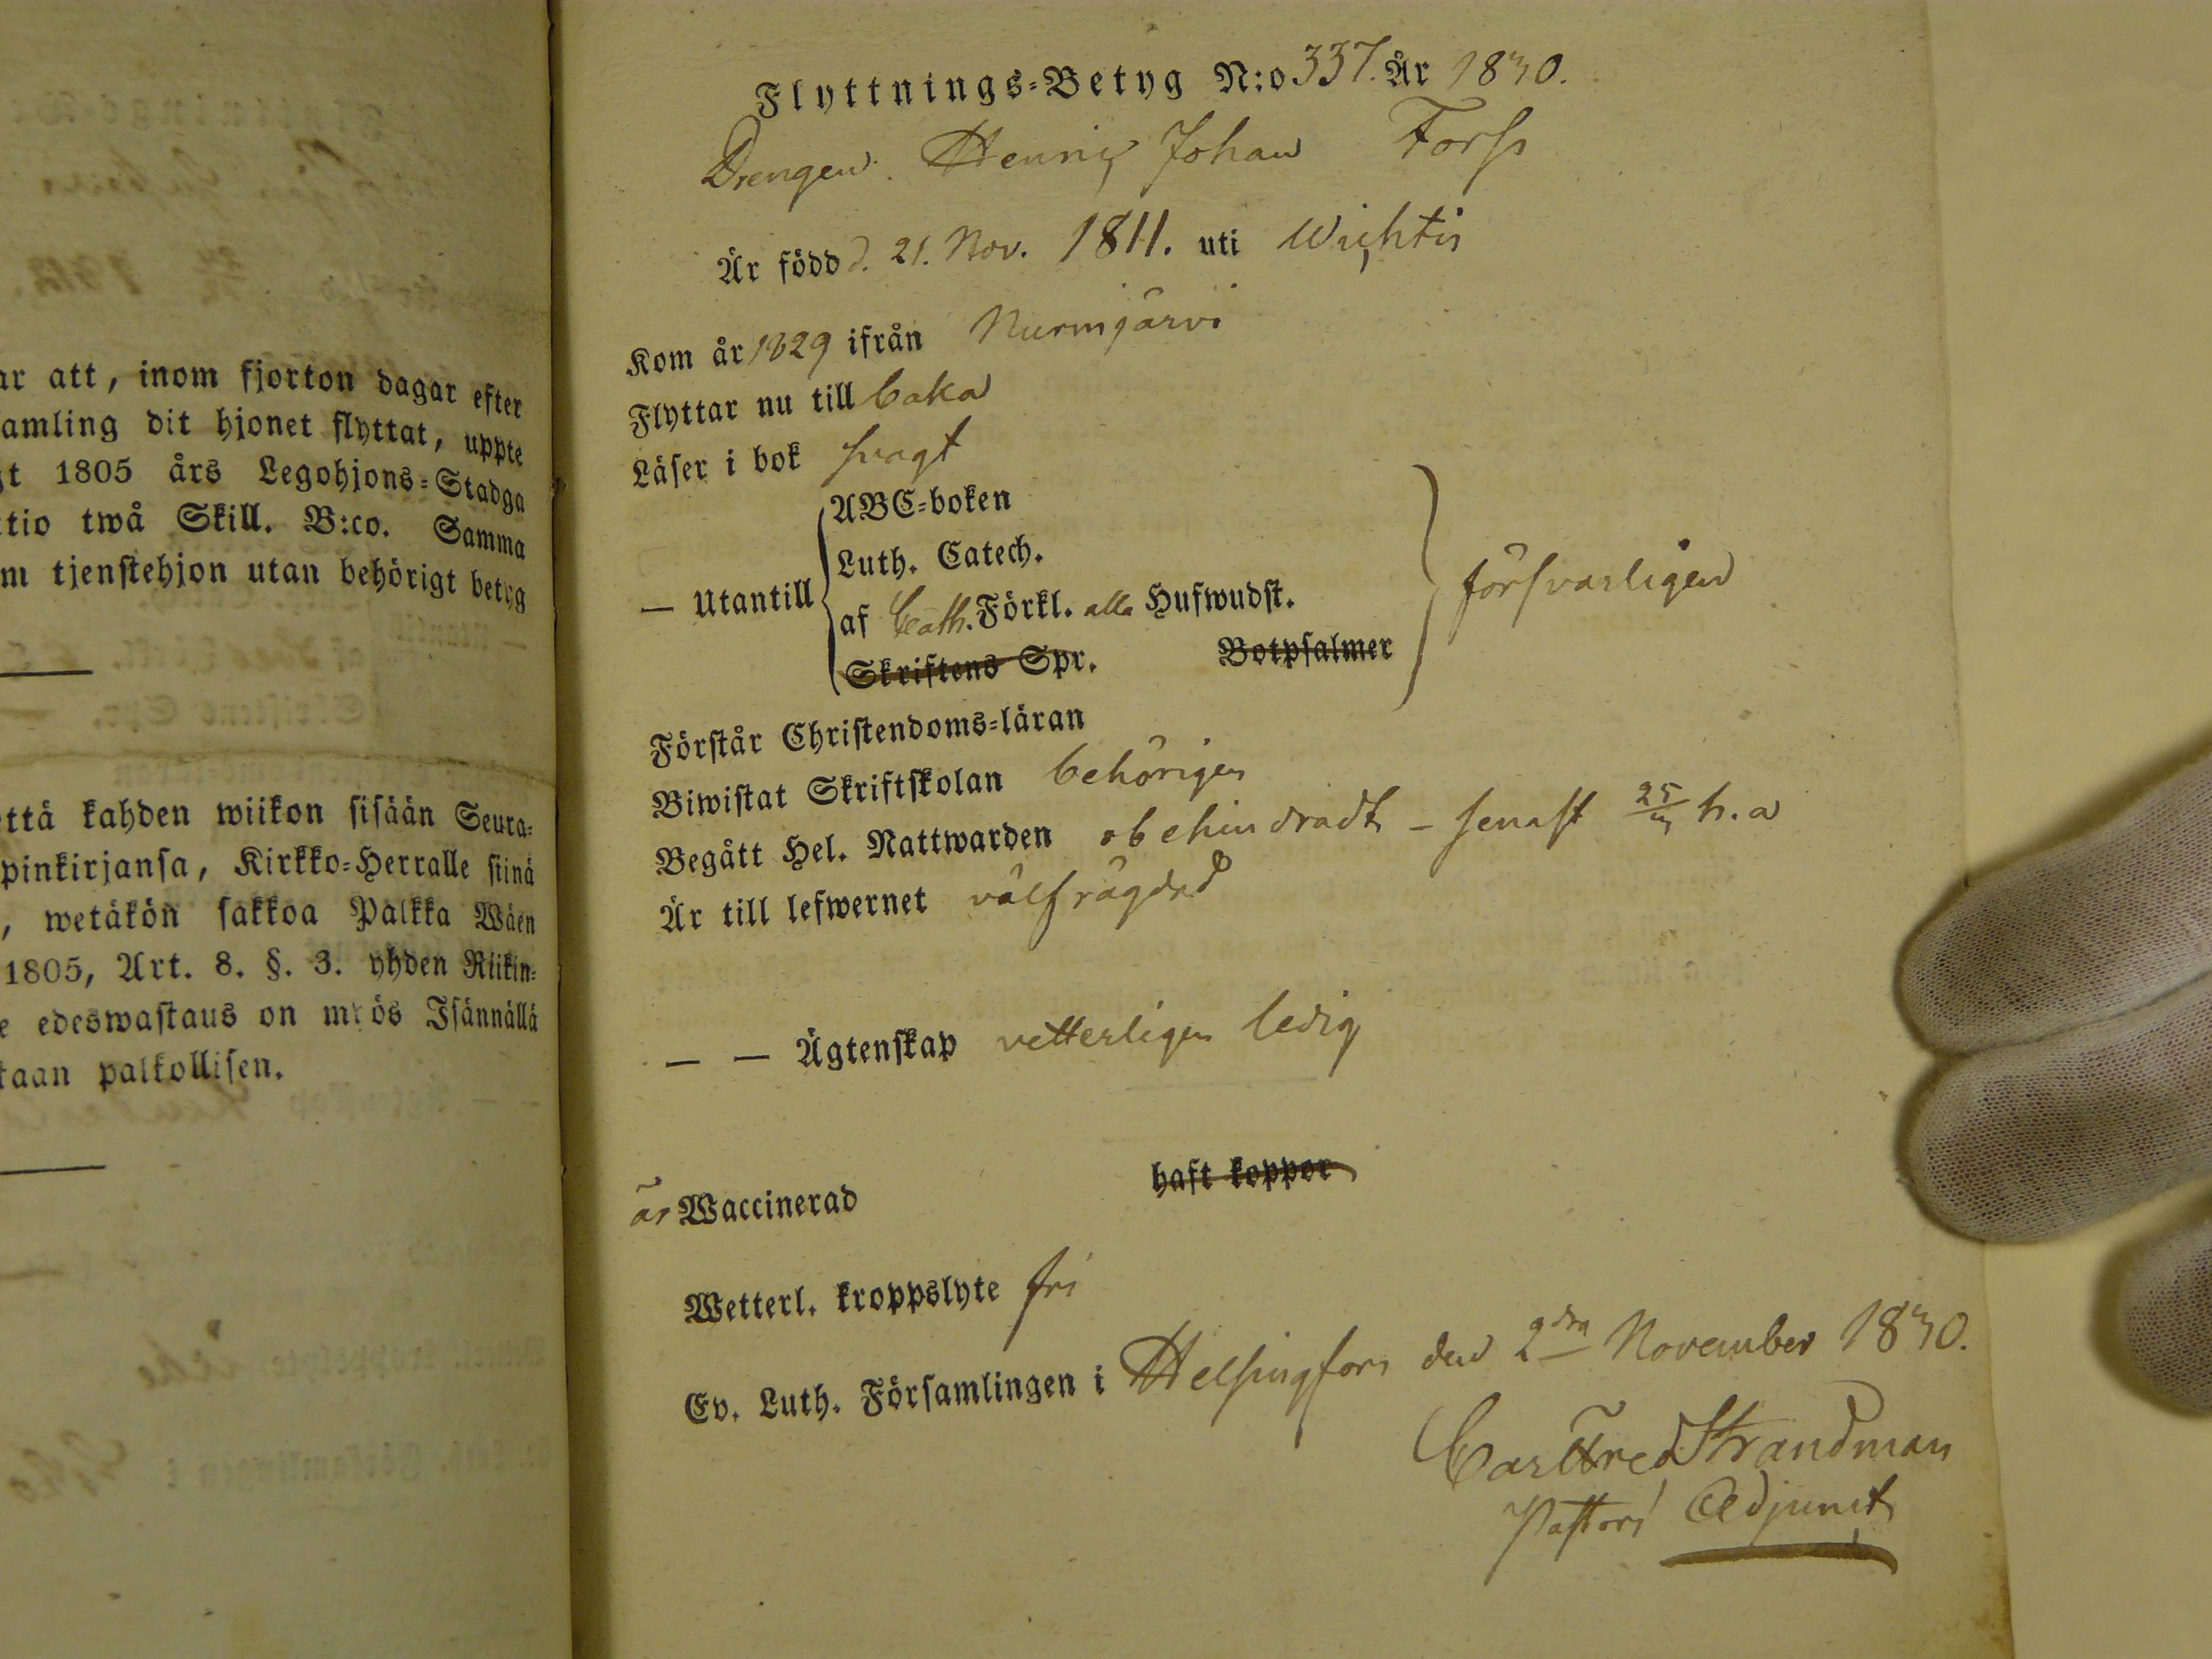 ar att, inom fjorton dagar efter
amling dit hjonet flyttat, uppte
gt 1805 års Legohjons-Stadga
tio twå Skill. B:co. Samma
m tjenstehjon utan behörigt betyg
että kahden wiikon sisään Seura-
pinkirjansa, Kirkko-Herralle siinä
, wetäkön sakkoa Palkka Wäen
1805, Art. 8. §. 3. yhden Riikin-
e edeswastaus on myös Isännällä
taan palkollisen.
Flyttnings-Betyg N:o 337. År 1830.
Drengen Henric Johan Forss
Är född d. 21. Nov. 1811. uti Wichtis
Kom år 1829 ifrån Nurmijärvi
Flyttar nu till baka
Läser i bok svagt
ABC-boken
Luth. Catech.
— Utantill af Cath. Förkl. alla Hufwudst. försvarligen
Skriftens Spr. Botpsalmer
Förstår Christendoms-läran
Biwistat Skriftskolan behörigen
Begått Hel. Nattwarden obehindradt – senast h. a
Är till lefwernet välfrägdad
— — Ägtenskap vetterligen ledig
är Waccinerad haft koppor
Wetterl. kroppslyte fri
Ev. Luth. Församlingen i Helsingfors den 2dra November 1830.
Carl Fred Strandman
Pastors Adjunct